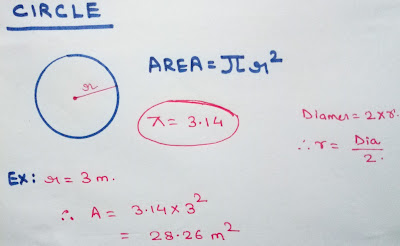 CIRCLE
r
AREA = πr²
π = 3.14
Diamer = 2×r.
∴ r = Dia
2.
Ex: r = 3 m.
∴ A = 3.14 × 3²
= 28.26 m²